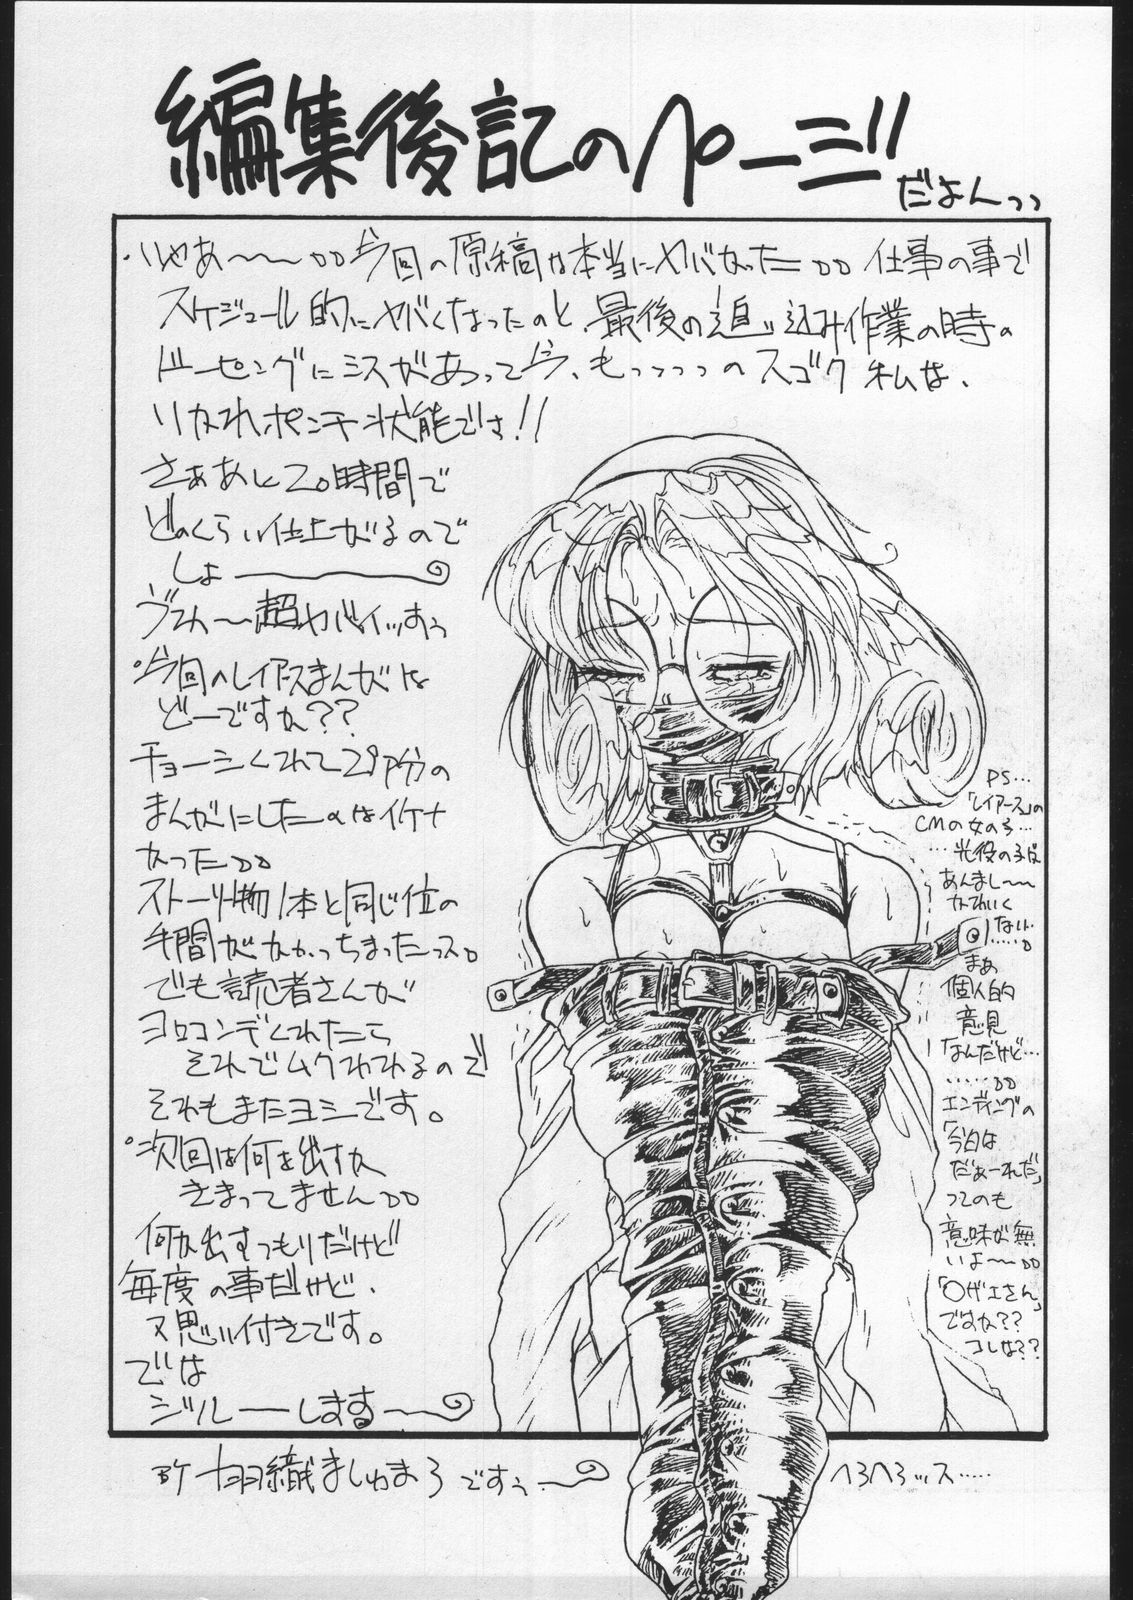 編集後記のページ
だよんっっ
・いやあ〜〜〇〇今回の原稿は本当にヤバかった〇〇仕事の事で
スケジュール的にヤバくなったのと、最後の追い込み作業の時の
ドーピングにミスがあって今、もっっっっのスゴク私は、
いかれポンチ状態でさ!!
さああと20時間で
どのくらい仕上がるので
しょ
ヴえ〜超ヤバイッすぅ
・今回のレイアースまんがは
どーですか??
チョーシくれて2P分の
まんがにしたのはイケナ
かった〇〇
ストーリー物1本と同じ位の
手間がかかっちまったっス。
でも読者さんが
ヨロコンデくれたら
それでムクわれるので
それもまたヨシです。
・次回は何を出すか
きまってません〇〇
何か出すつもりだけど
毎度の事だけど、
又思い付きです。
では
ジルーします
PS…
「レイアース」の
CMの女の子…
…光役の子は
あんまし〜〜
かわいく
ない…
まあ
個人的
意見
なんだけど…
……〇〇
エンディングの
「今日は
だぁーれだ」
ってのも
意味が無
いよ〜〇〇
「〇ザエさん」
ですか??
コレは??
BY 羽織ましゅまろですぅ〜
へろへろッス……